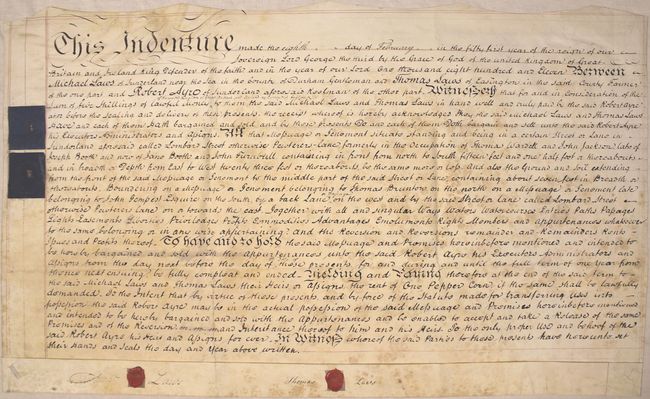 This Indenture made the eighth day of February in the fifty first year of the reign of our
Sovereign Lord George the third by the Grace of God of the united kingdom of Great
Britain and Ireland King Defender of the faith and in the year of our Lord One thousand eight hundred and Eleven Between
Michael Laws of Sunderland near the Sea in the County of Durham Gentleman and Thomas Laws of Easington in the said County Farmer
of the one part and Robert Ayre of Sunderland aforesaid Keelman of the other part Witnesseth that for and in Consideration of the
Sum of five Shillings of lawful Money to them the said Michael Laws and Thomas Laws in hand well and truly paid by the said Robert Ayre
at or before the Sealing and delivery of these presents the receipt whereof is hereby acknowledged they the said Michael Laws and Thomas Laws
Have and each of them Hath bargained and sold and by these presents Do and each of them Doth bargain and sell unto the said Robert Ayre
his Executors Administrators and Assigns All that Messuage or Tenement situate standing and being in a certain Street or Lane in
Sunderland aforesaid called Lombard Street otherwise Pewterers Lane formerly in the Occupation of Thomas and John Jackson late of
Joseph Booth and now of Jane Booth and John containing in front from north to South fifteen feet and one half foot or thereabouts
and in breadth or Depth from East to West twenty three feet or thereabouts be the same more or less And also the Ground and Soil extending
from the front of the said Messuage or Tenement to the middle part of the said Street or Lane containing about seven feet in Breadth or
thereabouts Boundering on a Messuage or Tenement belonging to Thomas Brunton on the north on a Messuage or Tenement late
belonging to John Tempest Esquire on the South by a back Lane on the west and by the said Street or Lane called Lombard Street
otherwise Pewterers Lane on or towards the east Together with all and singular Ways Waters Watercourses Entries Paths Passages
Lights Easements Liberties Priviledges Profits Commodities Advantages Emoluments Rights Members and appurtenances whatsoever
to the same belonging or in any wise appertaining and the Reversion and Reversions remainder and Remainders Rents
Issues and Profits thereof To have and to hold the said Messuage and Premises hereinbefore mentioned and intended to
be hereby bargained and sold with the Appurtenances unto the said Robert Ayre his Executors Administrators and
Assigns from the day next before the day of these presents for and during and until the full term of one Year from
thence next ensuing be fully compleat and ended Yielding and Paying therefore at the end of the said term to
the said Michael Laws and Thomas Laws their Heirs or Assigns the rent of One Pepper Corn if the same shall be lawfully
demanded To the Intent that by virtue of these presents and by force of the Statute made for transferring Uses into
possession the said Robert Ayre may be in the actual possession of the said Messuage and Premises hereinbefore mentioned
and intended to be hereby bargained and sold with the Appurtenances and be enabled to accept and take a Release of the same
Premises and of the Reversion and Inheritance thereof to him and his Heirs To the only proper Use and behoof of the
said Robert Ayre his Heirs and Assigns for ever In Witness whereof the said Parties to these presents have hereunto set
their hands and Seals the day and Year above written
Laws Thomas Laws